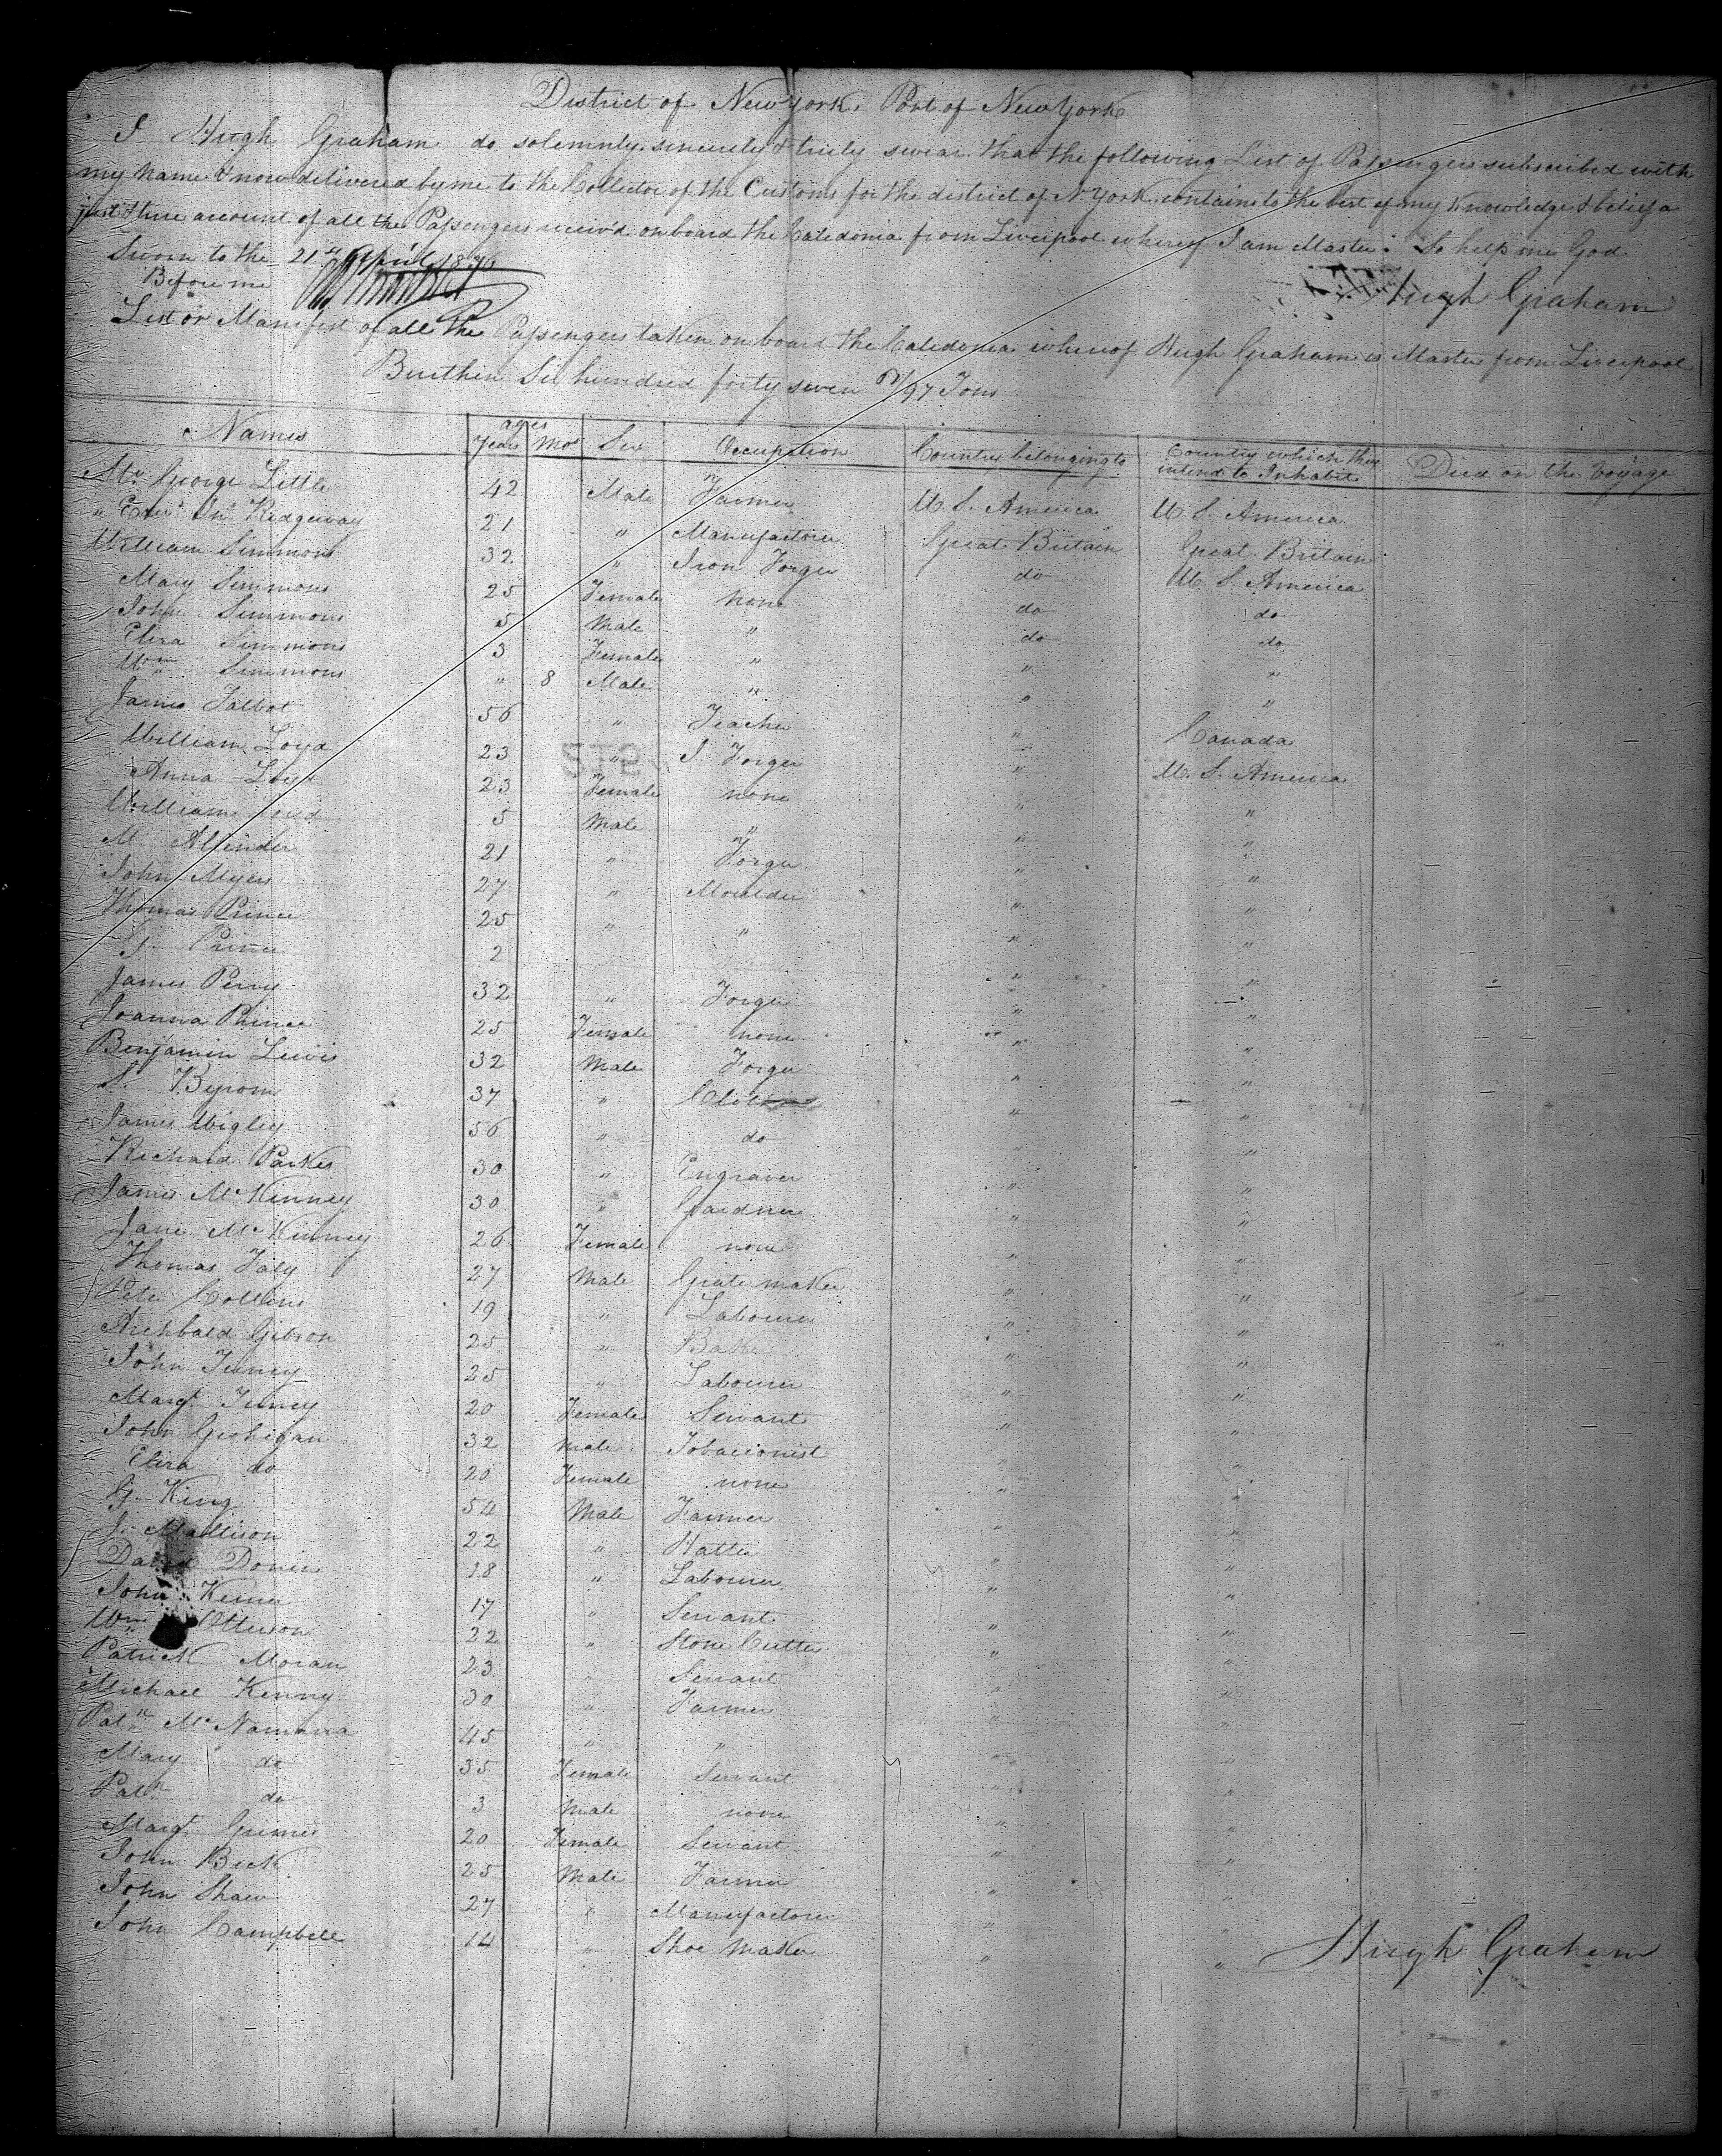 District of New York. Port of New York
I Hugh Graham do solemnly, sincerely & truly swear that the following List of Passengers subscribed with
my name & now delivered by me to the Collector of the Customs for the district of N. York contains to the best of my Knowledge & belief a
just & true account of all the Passengers receivd on board the Caledonia from Liverpool whereof I am Master. So help me God
Sworn to the 21st April 1830
Before me
Hugh Graham
List or Manifest of all the Passengers taken on board the Caledonia whereof Hugh Graham is Master from Liverpool
Burthen Six hundred forty seven /97 Tons
Names ages Years Mos Sex Occupation Country belonging to Country which they intend to Inhabit Died on the Voyage
Mr. George Little 42 Male Farmer U. S. America U. S. America
" Edwd Jno Ridgeway 21 " Manufacturer Great Britain Great Britain
William Simmons 32 " Iron Forger do U. S. America
Mary Simmons 25 Female none do do
John Simmons 5 Male " do do
Eliza Simmons 3 Female " " "
Wm Simmons " 8 Male " " "
James Talbot 56 " Teacher " Canada
William Loyd 23 " I. Forger " U. S. America
Anna Loyd 23 Female none " "
William Loyd 5 Male " " "
M. 21 " Forger " "
John Myers 27 " Moulder " "
Thomas Prince 25 " " " "
Prince 2 " "
James Perry 32 " Forger " "
Joanna Prince 25 Female none " "
Benjamin Lewis 32 Male Forger " "
S. Byrom 37 " " "
James Wigley 56 " do " "
Richard Parkes 30 " Engraver " "
James McKinney 30 " Gardner " "
Jane McKinney 26 Female none " "
Thomas Faly 27 Male Grate maker " "
Peter Collins 19 " Labourer " "
Archbald Gibson 25 " Baker " "
John Turney 25 " Labourer " "
Margt Turney 20 Female Servant " "
John Geohigan 32 Male Tobacconist " "
Eliza do 20 Female none " "
G. King 54 Male Farmer " "
J. Mallison 22 " Hatter " "
David 18 " Labourer " "
John 17 " Servant " "
Wm Otterson 22 " Stone Cutter " "
Patrick Moran 23 " Servant " "
Michael Kenny 30 " Farmer " "
Patk McNamara 45 " " " "
Mary do 35 Female Servant " "
Patk do 3 Male none " "
Margt Grimes 20 Female Servant " "
John Beck 25 Male Farmer " "
John Shaw 27 " Manufacturer " "
John Campbell 14 " Shoe Maker " "
Hugh Graham